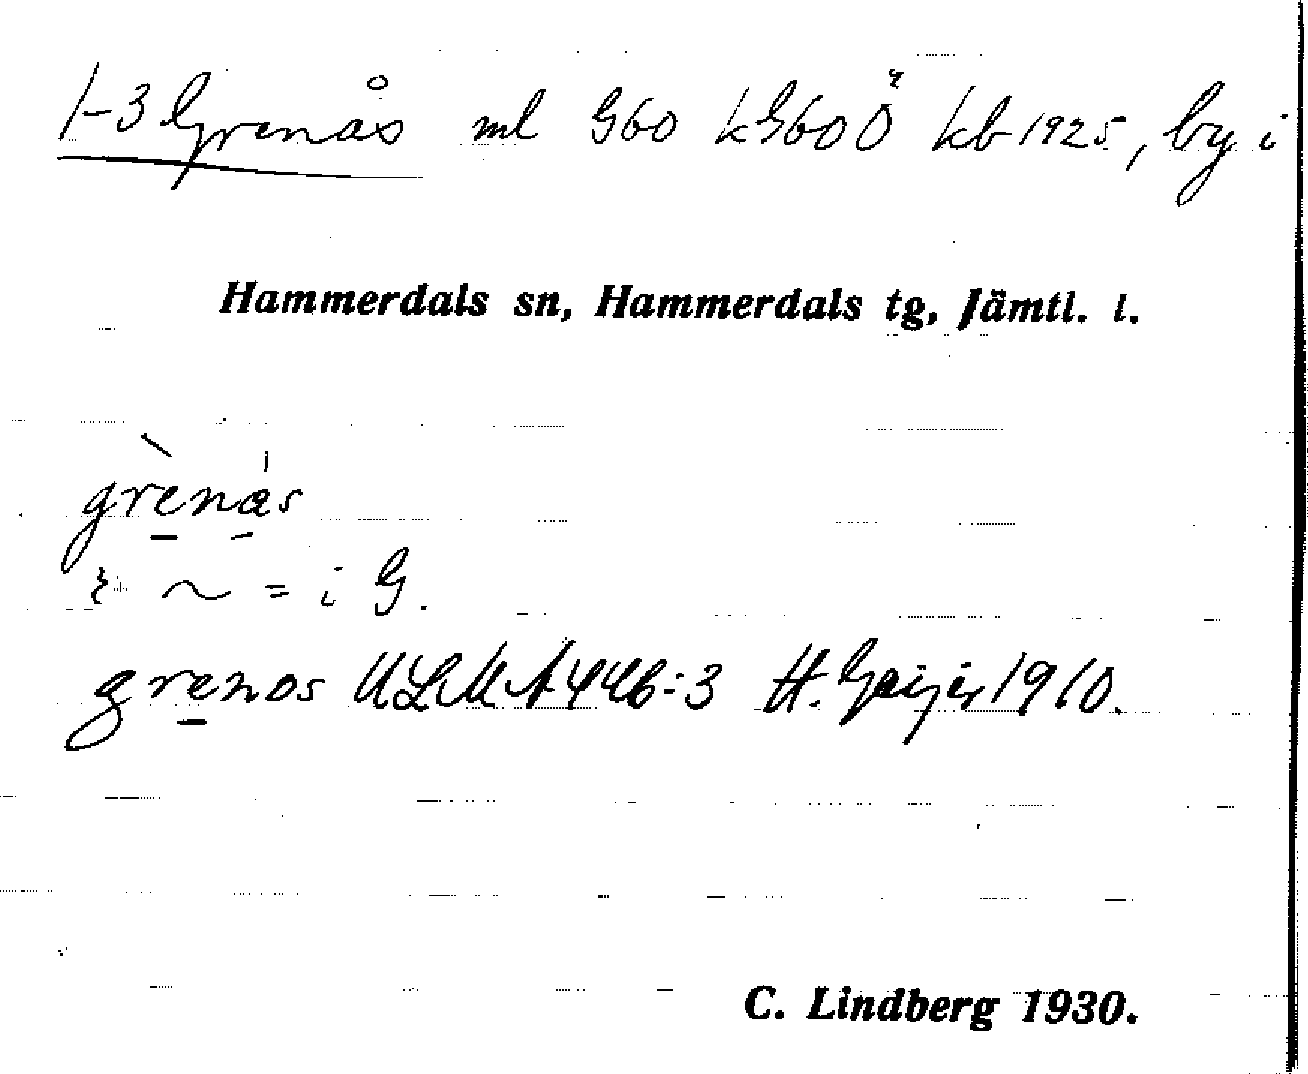 1-3 Grenås ml G60 kG60Ö kb 1925, by i
Hammerdals sn, Hammerdals tg, Jämtl. l.
grènás
~ = i G.
grenos ULMA 446:3 H. Geijer 1910.
C. Lindberg 1930.